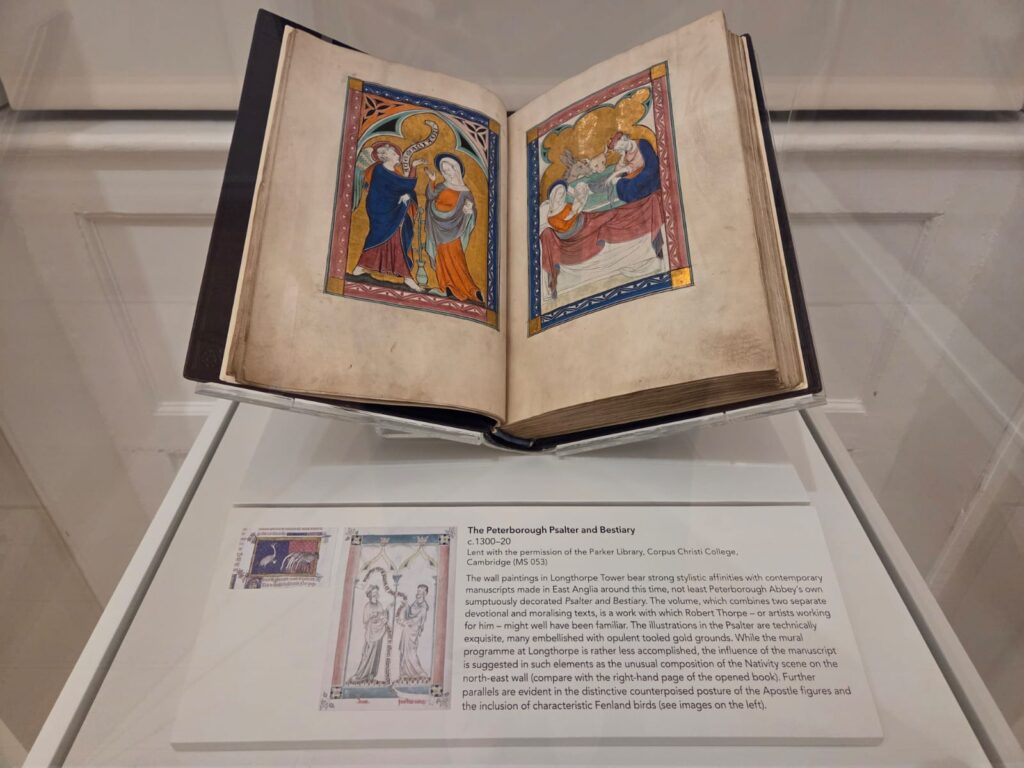 The Peterborough Psalter and Bestiary
c.1300–20
Lent with the permission of the Parker Library, Corpus Christi College,
Cambridge (MS 053)
The wall paintings in Longthorpe Tower bear strong stylistic affinities with contemporary
manuscripts made in East Anglia around this time, not least Peterborough Abbey's own
sumptuously decorated Psalter and Bestiary. The volume, which combines two separate
devotional and moralising texts, is a work with which Robert Thorpe – or artists working
for him – might well have been familiar. The illustrations in the Psalter are technically
exquisite, many embellished with opulent tooled gold grounds. While the mural
programme at Longthorpe is rather less accomplished, the influence of the manuscript
is suggested in such elements as the unusual composition of the Nativity scene on the
north-east wall (compare with the right-hand page of the opened book). Further
parallels are evident in the distinctive counterpoised posture of the Apostle figures and
the inclusion of characteristic Fenland birds (see images on the left).